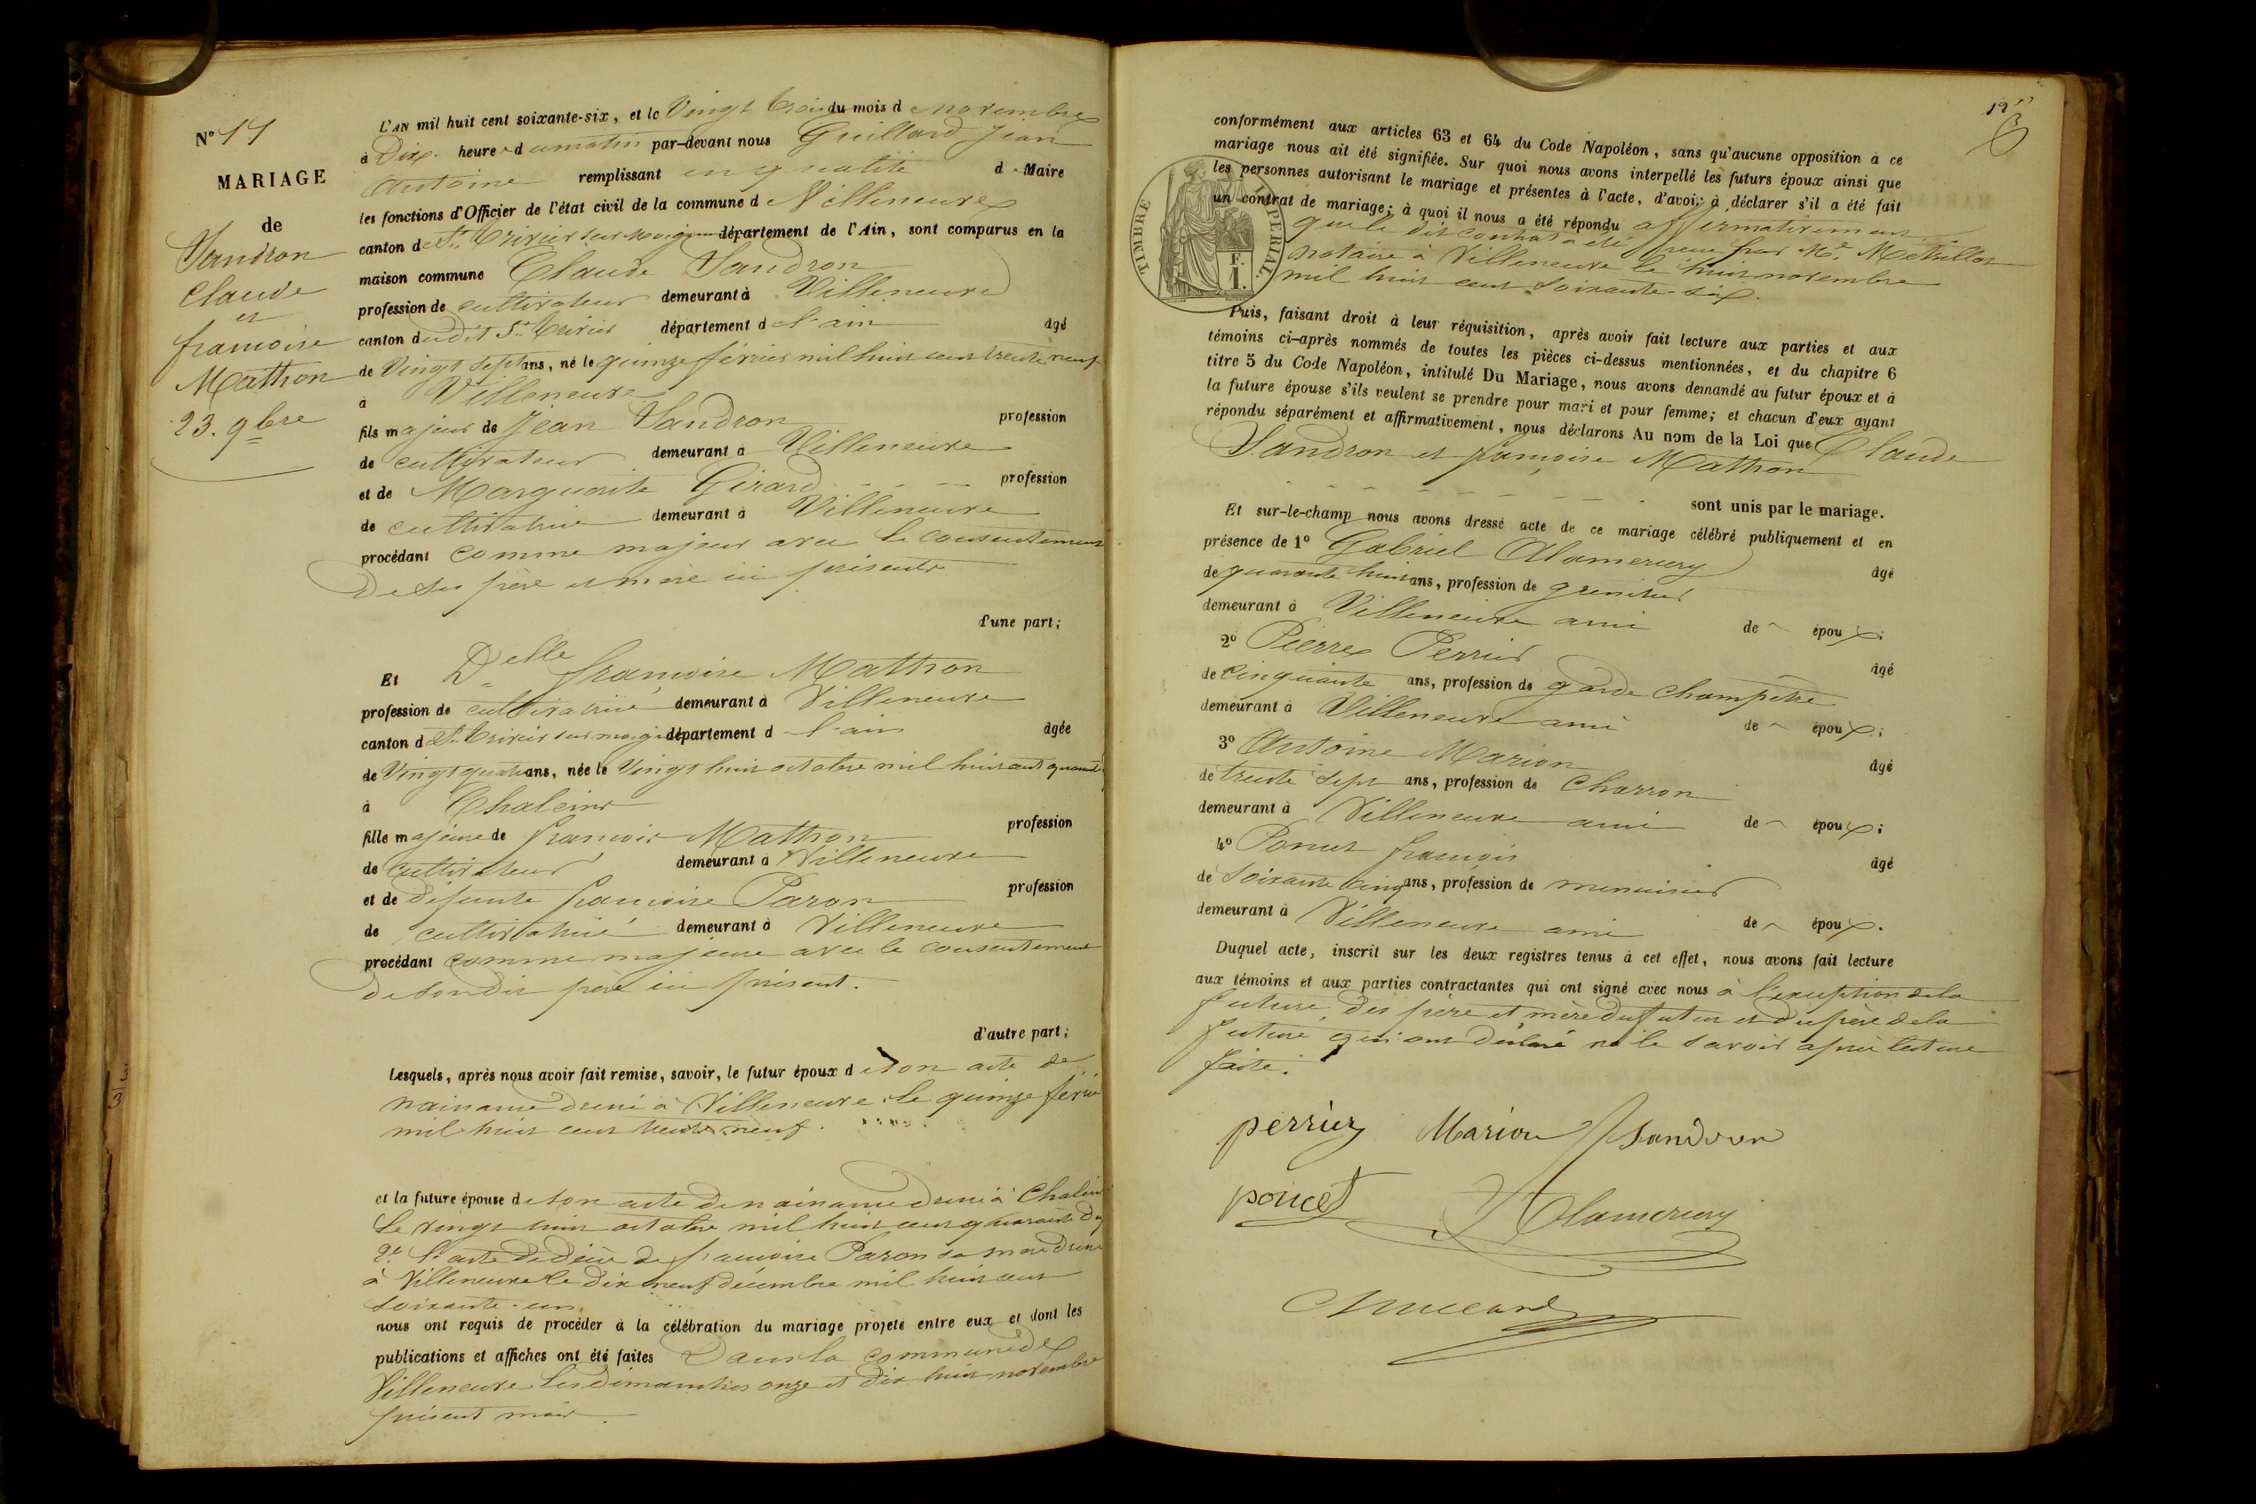 N° 11
MARIAGE
de
Sandron
Claude
et
françoise
Mathon
23. 9bre
L'AN mil huit cent soixante-six, et le Vingt trois du mois de novembre
à Dix heures du matin par-devant nous Guillard Jean
Antoine remplissant en qualité de Maire
les fonctions d'Officier de l'état civil de la commune de Villeneuve
canton de St. Trivier sur Moignans département de l'Ain, sont comparus en la
maison commune Claude Sandron
profession de cultivateur demeurant à Villeneuve
canton dudit St. Trivier département de l'ain âgé
de Vingt sept ans, né le quinze février mil huit cent trente neuf
à Villeneuve
fils majeur de Jean Sandron profession
de cultivateur demeurant à Villeneuve
et de Marguerite Girard profession
de cultivatrice demeurant à Villeneuve
procédant comme majeur avec le consentement
de ses père et mère ici présents
d'une part;
Et Delle françoise Mathon
profession de cultivatrice demeurant à Villeneuve
canton de St. Trivier sur moignans département de l'ain âgée
de Vingt quatre ans, née le Vingt huit octobre mil huit cent quarante
à Chaleins
fille majeure de françois Mathon profession
de Cultivateur demeurant à Villeneuve
et de défunte françoise Paron profession
de cultivatrice demeurant à Villeneuve
procédant comme majeure avec le consentement
de son dit père ici présent.
d'autre part;
Lesquels, après nous avoir fait remise, savoir, le futur époux de son acte de
naissance dressé à Villeneuve le quinze février
mil huit cent trente neuf.
et la future épouse de son acte de naissance dressé à Chaleins
le vingt huit octobre mil huit cent quarante deux
2° L'acte de décès de françoise Paron sa mère dressé
à Villeneuve le dix neuf décembre mil huit cent
soixante-un
nous ont requis de procéder à la célébration du mariage projeté entre eux et dont les
publications et affiches ont été faites Dans la commune de
Villeneuve les dimanches onze et dix huit novembre
présent mois.
conformément aux articles 63 et 64 du Code Napoléon, sans qu'aucune opposition à ce
mariage nous ait été signifiée. Sur quoi nous avons interpellé les futurs époux ainsi que
les personnes autorisant le mariage et présentes à l'acte, d'avoir à déclarer s'il a été fait
un contrat de mariage; à quoi il nous a été répondu affirmativement
que le dit contrat a été reçu par Me. Métrillot
notaire à Villeneuve le huit novembre
mil huit cent soixante-six.
TIMBRE IMPERIAL.
F.
1.
Puis, faisant droit à leur réquisition, après avoir fait lecture aux parties et aux
témoins ci-après nommés de toutes les pièces ci-dessus mentionnées, et du chapitre 6
titre 5 du Code Napoléon, intitulé Du Mariage, nous avons demandé au futur époux et à
la future épouse s'ils veulent se prendre pour mari et pour femme; et chacun d'eux ayant
répondu séparément et affirmativement, nous déclarons Au nom de la Loi que Claude
Sandron et françoise Mathon
sont unis par le mariage.
Et sur-le-champ nous avons dressé acte de ce mariage célébré publiquement et en
présence de 1° Gabriel Alamercery âgé
de quarante huit ans, profession de grenetier
demeurant à Villeneuve ami de époux;
2° Pierre Perrier âgé
de Cinquante ans, profession de garde champêtre
demeurant à Villeneuve ami de époux;
3° Antoine Marion âgé
de trente sept ans, profession de Charron
demeurant à Villeneuve ami de époux;
4° Poncet françois âgé
de soixante cinq ans, profession de menuisier
demeurant à Villeneuve ami de époux.
Duquel acte, inscrit sur les deux registres tenus à cet effet, nous avons fait lecture
aux témoins et aux parties contractantes qui ont signé avec nous à l'exception de la
future, des père et mère du futur et du père de la
future qui ont déclaré ne le savoir après lecture
faite.
perrier Marion Sandron
poncet Alamercery